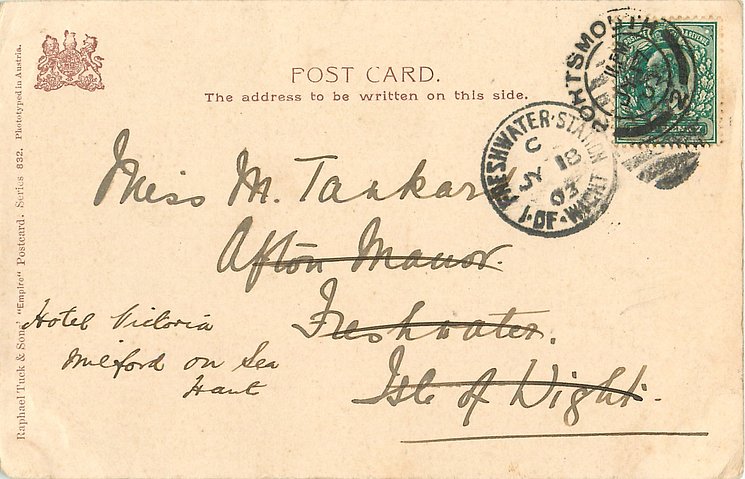 POST CARD.
The address to be written on this side.
PORTSMOUTH
2
FRESHWATER·STATION
C
JY 18
03
I·OF·WIGHT
Miss M. Tankard
Afton Manor.
Freshwater.
Isle of Wight.
Hotel Victoria
Milford on Sea
Hant
Raphael Tuck & Sons' "Empire" Postcard. Series 832. Phototyped in Austria.